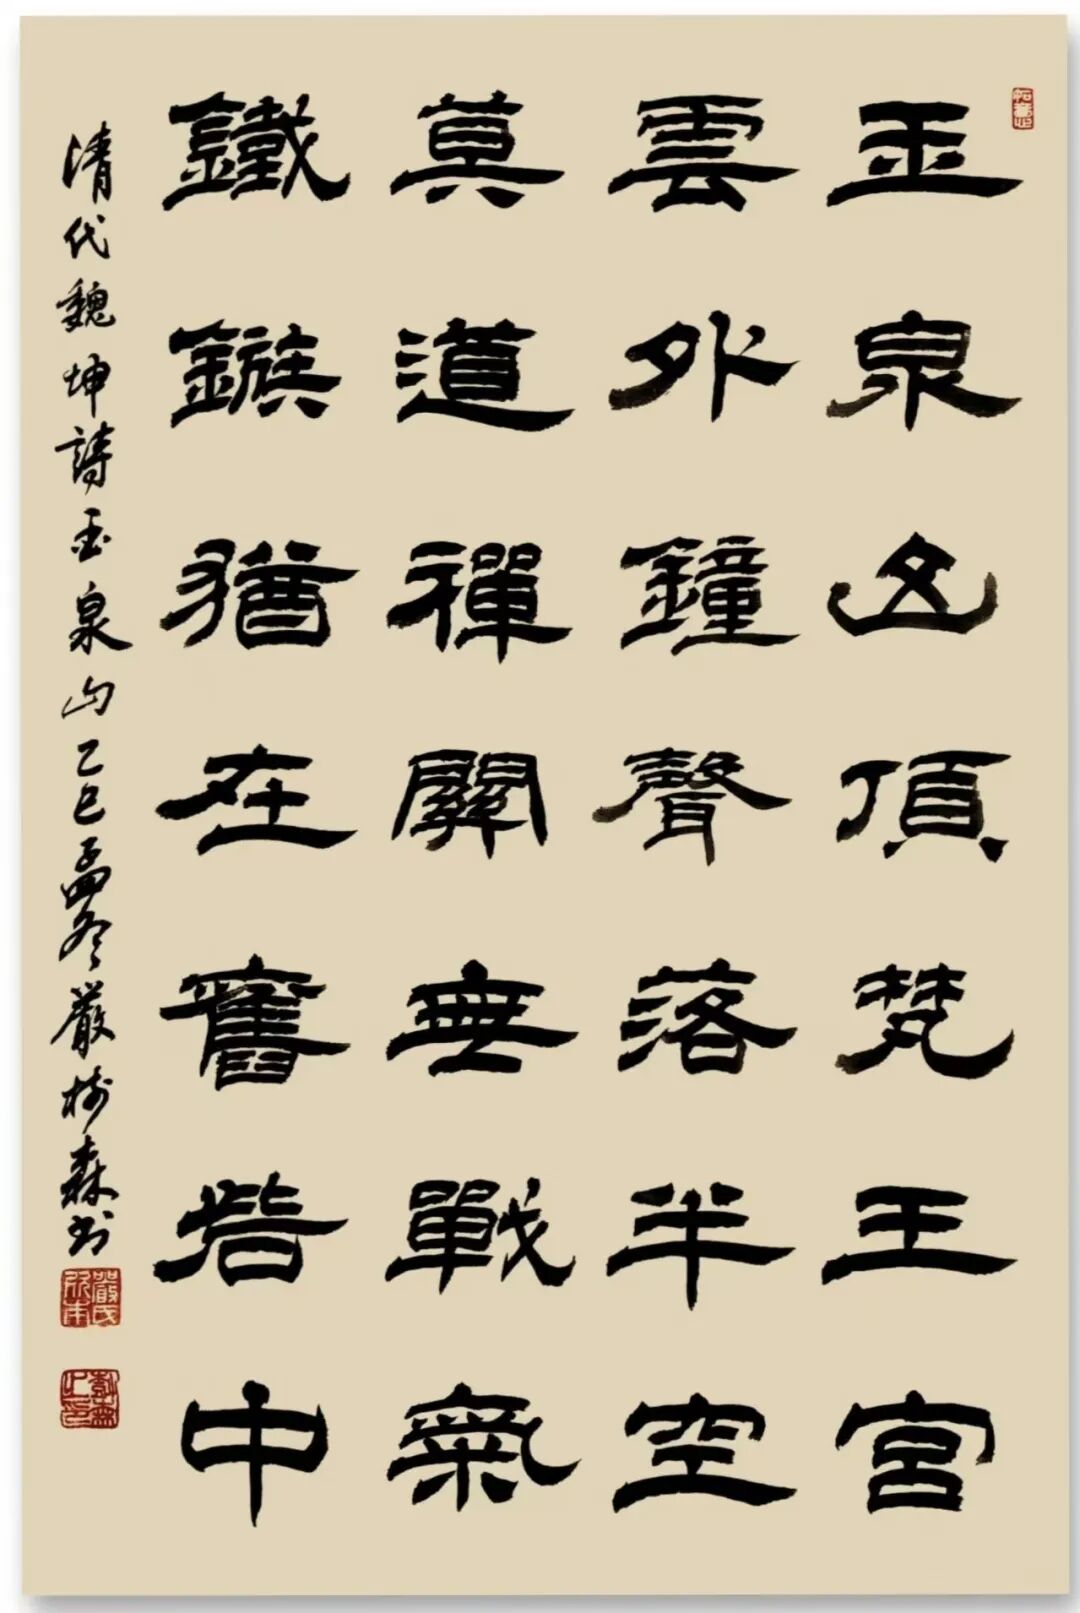 玉泉山頂梵王宮
雲外鐘聲落半空
莫道禪關無戰氣
鐵鏃猶在舊砦中
清代魏坤詩玉泉山乙巳孟冬嚴樹森书